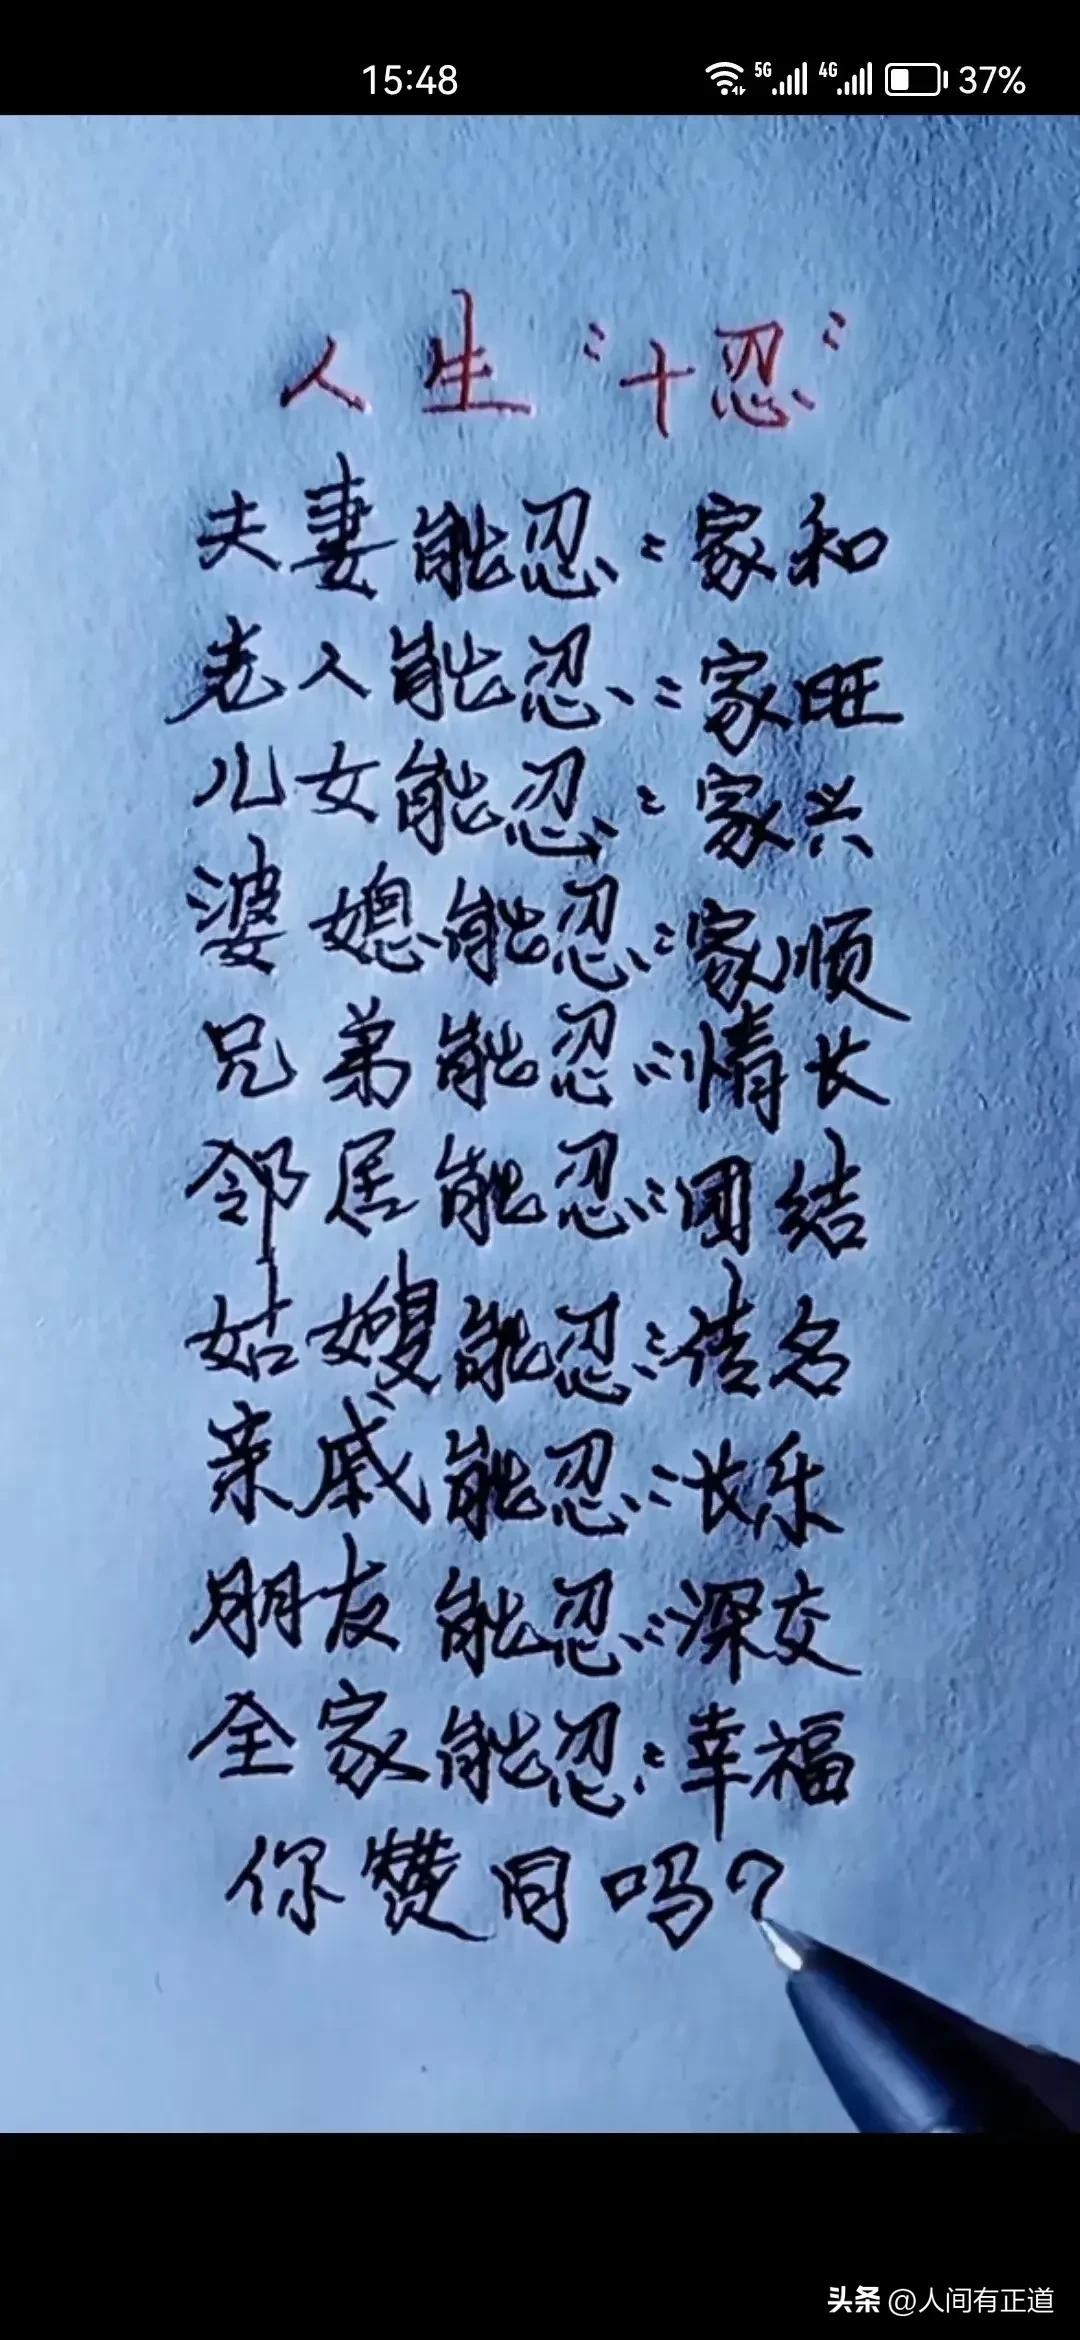 15:48 5G 4G 37%
人生“十忍”
夫妻能忍：家和
老人能忍：家旺
儿女能忍：家兴
婆媳能忍：家顺
兄弟能忍：情长
邻居能忍：团结
姑嫂能忍：传名
亲戚能忍：长乐
朋友能忍：深交
全家能忍：幸福
你赞同吗？
头条 @人间有正道